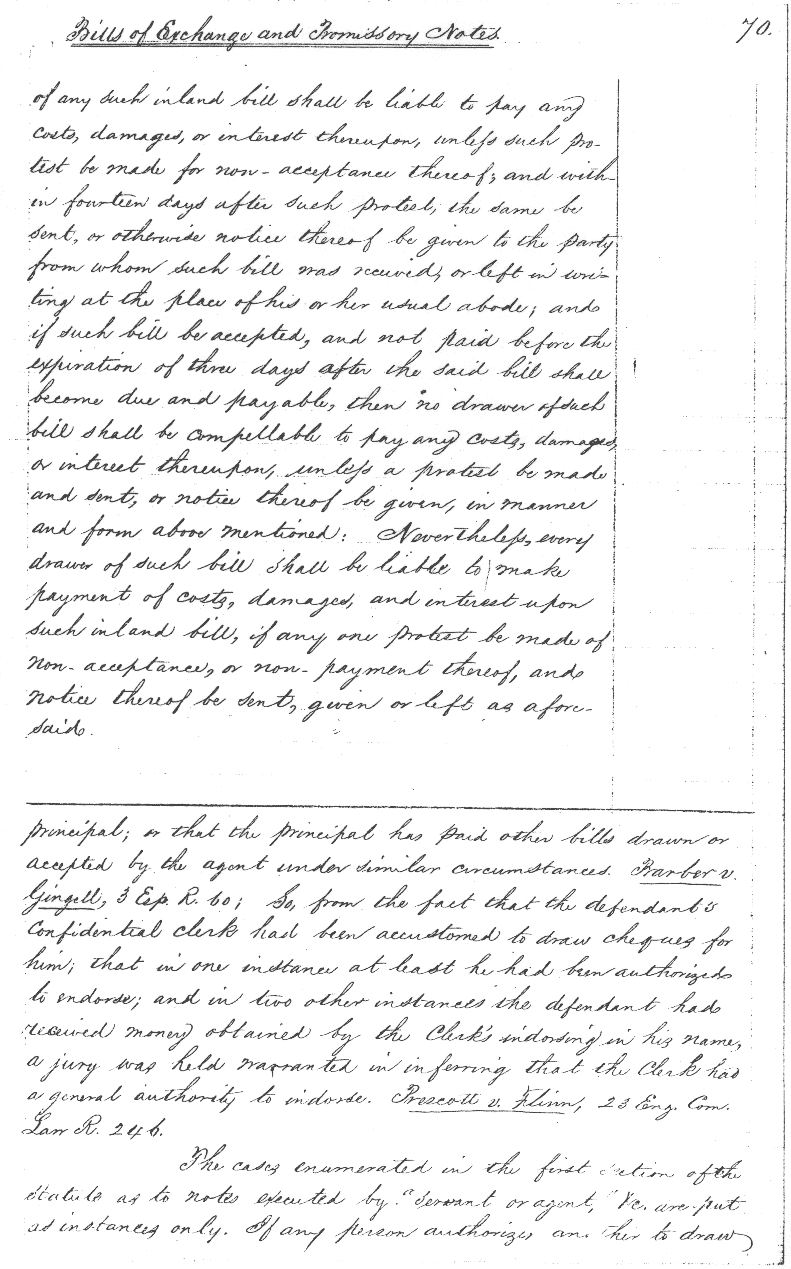 Bills of Exchange and Promissory Notes
70.
of any such inland bill shall be liable to pay any
costs, damages, or interest thereupon, unless such pro-
test be made for non-acceptance thereof; and with-
in fourteen days after such protest, the same be
sent, or otherwise notice thereof be given to the party
from whom such bill was received, or left in wri-
ting at the place of his or her usual abode; and
if such bill be accepted, and not paid before the
expiration of three days after the said bill shall
become due and payable, then no drawer of such
bill shall be compellable to pay any costs, damages,
or interest thereupon, unless a protest be made
and sent, or notice thereof be given, in manner
and form above mentioned: Nevertheless, every
drawer of such bill shall be liable to make
payment of costs, damages, and interest upon
such inland bill, if any one protest be made of
non-acceptance, or non-payment thereof, and
notice thereof be sent, given or left as afore-
said.
principal; or that the principal has paid other bills drawn or
accepted by the agent under similar circumstances. Barber v.
Gingell, 3 Esp. R. 60; So, from the fact that the defendant's
Confidential clerk had been accustomed to draw cheques for
him; that in one instance at least he had been authorized
to endorse; and in two other instances the defendant had
received money obtained by the Clerk's indorsing in his name,
a jury was held warranted in inferring that the Clerk had
a general authority to indorse. Prescott v. Flinn, 23 Eng. Com.
Law R. 246.
The cases enumerated in the first section of the
statute as to notes executed by "servant or agent," &c. are put
as instances only. If any person authorizes another to draw